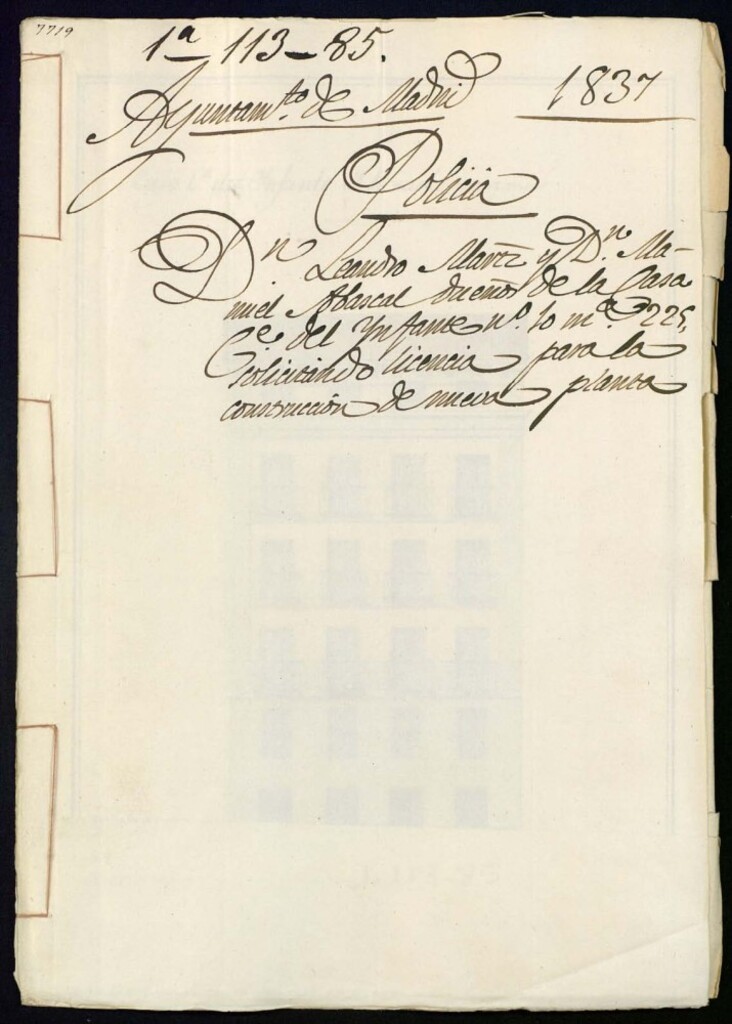 7719
1ª 113-85.
Ayuntamto de Madrid 1837
Policia
Dn Leandro Marñz y Dn Ma-
nuel Abascal dueños de la Casa
Ce del Ynfante nº 10 mª 225,
solicitando licencia para la
construccion de nueva planta